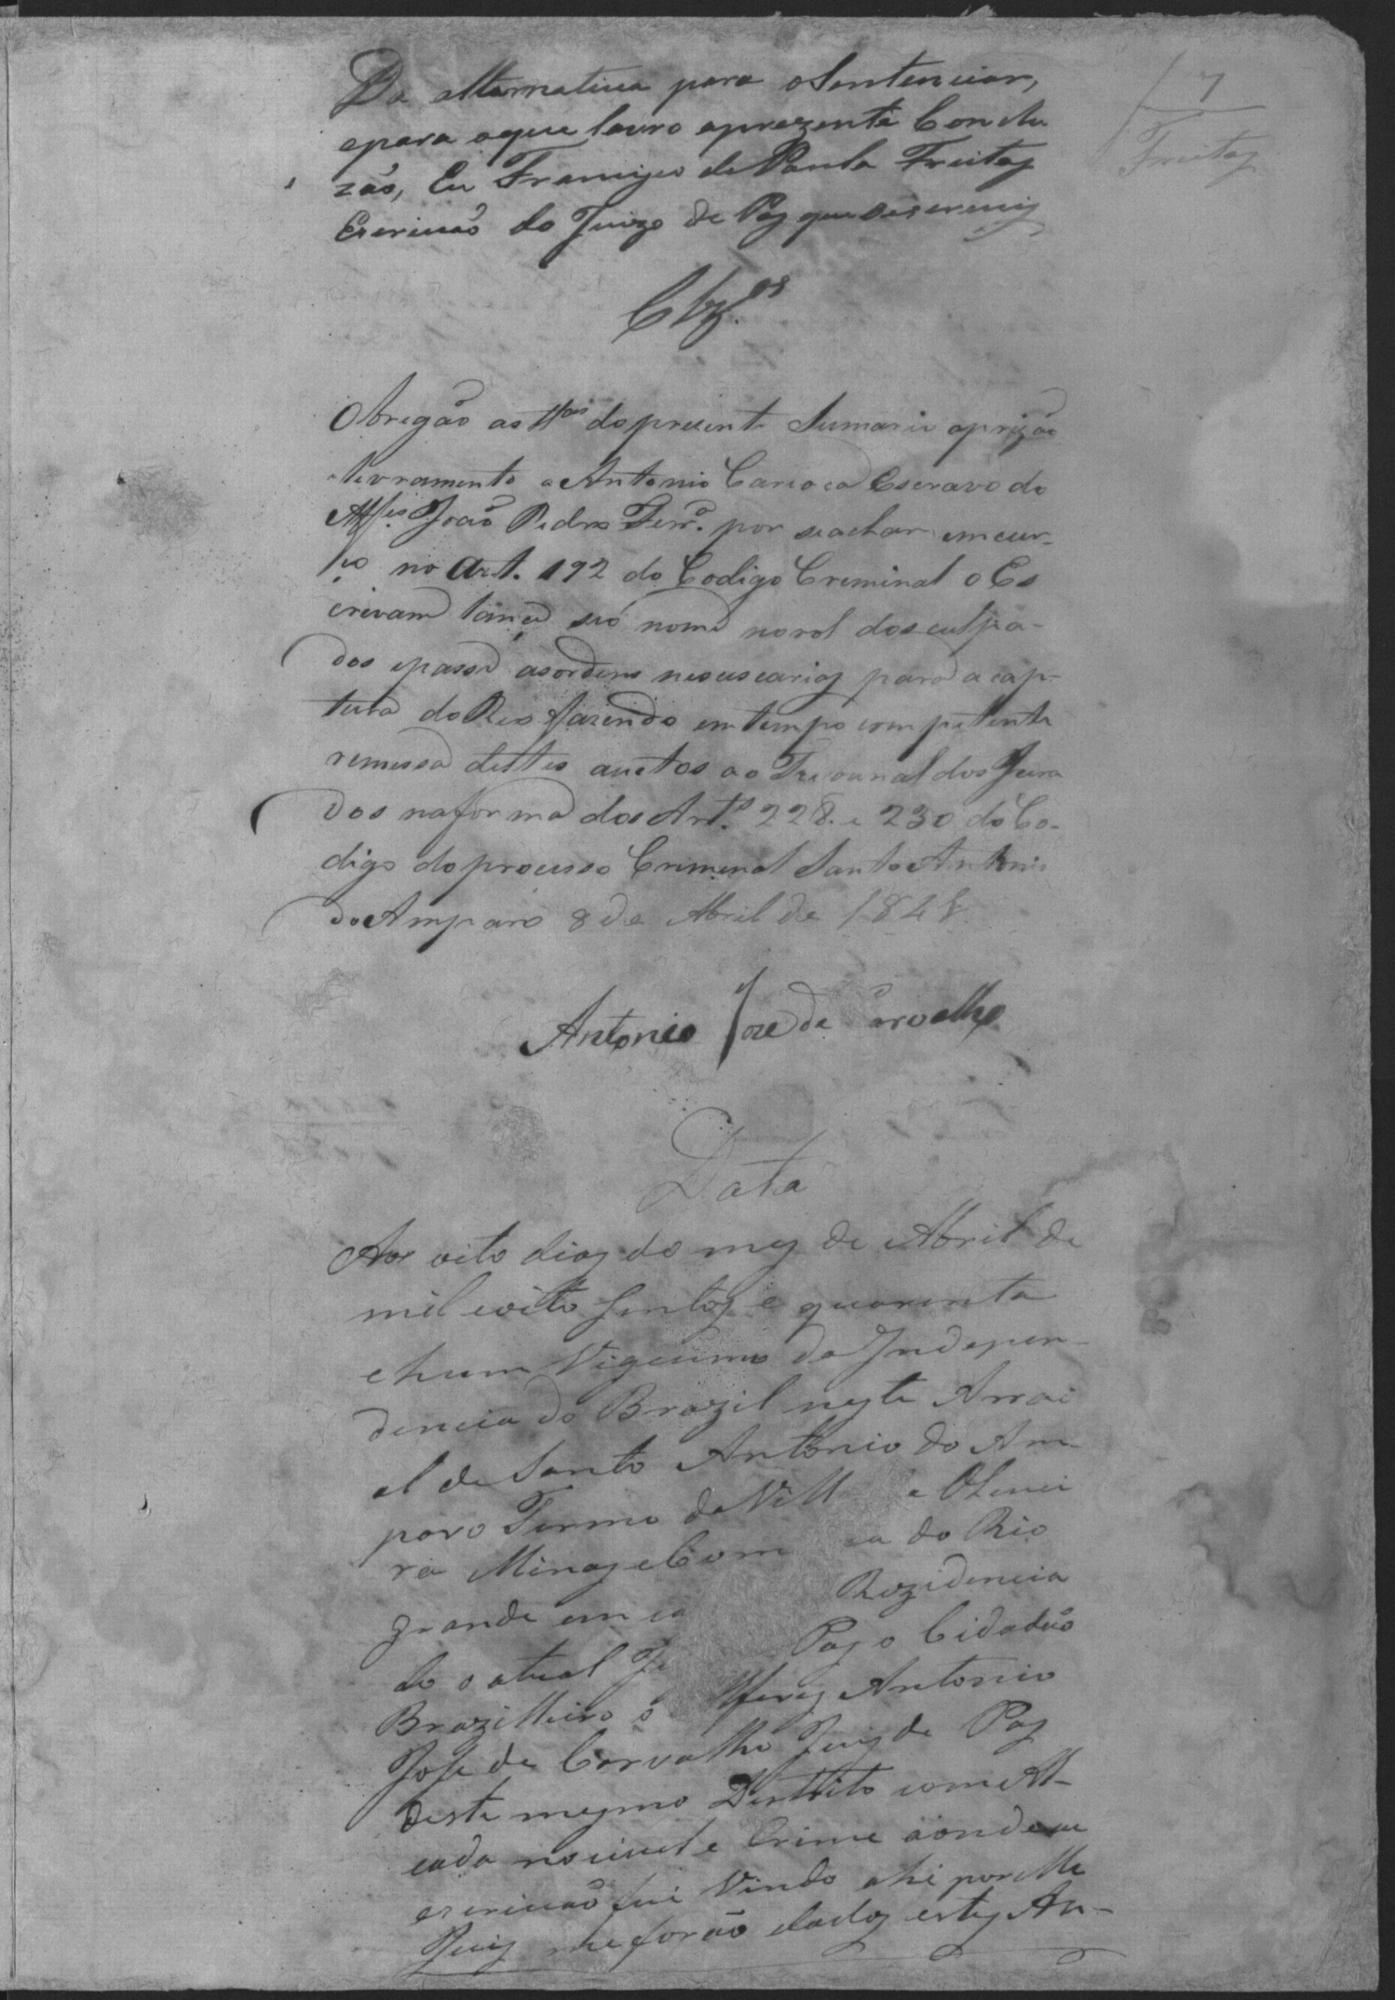 7
Freitas
Da alternativa para o Sentenciar,
epara oque lavro aprezente Conclu
zão, Eu Francisco de Paula Freitas
Escrivão do Juizo de Paz que oescrevi
Clz.os
Obregão as tt.as do prezente Sumario aprizão
elivramento a Antonio Carioca Escravo do
Alf.es João Pedro Ferr.a por seachar emcur-
ço no Art. 192 do Codigo Creminal o Es
crivam lançe seo nome norol dosculpa-
dos epasse asordens nesuscarias para a cap-
tura do Reo fazendo em tempo competente
remessa destes auctos ao Tribunal dos Jura
dos naforma dos Art.s 228. e 230 do Co-
digo do processo Criminal Santo Antonio
do Amparo 8 de Abril de 184
Antonio Jose de Carvalho
Data
Aos oito dias do mes de Abril de
mil eoito sentos e quarenta
ehum Vigecimo da Indepen-
dencia do Brazil neste Arrai
al de Santo Antonio do Am-
paro Termo da Vill e Olivei
ra Minas eCom ca do Rio
grande em ca Rezidencia
do o atual Ju Paz o Cidadão
Brazilleiro o Alferes Antonio
Jose de Carvalho Juis de Paz
deste mesmo Destrito com Al-
cada nocivel e Crime aonde eu
escrivão fui Vindo ahi porelle
Juis me forão dados estes Au-